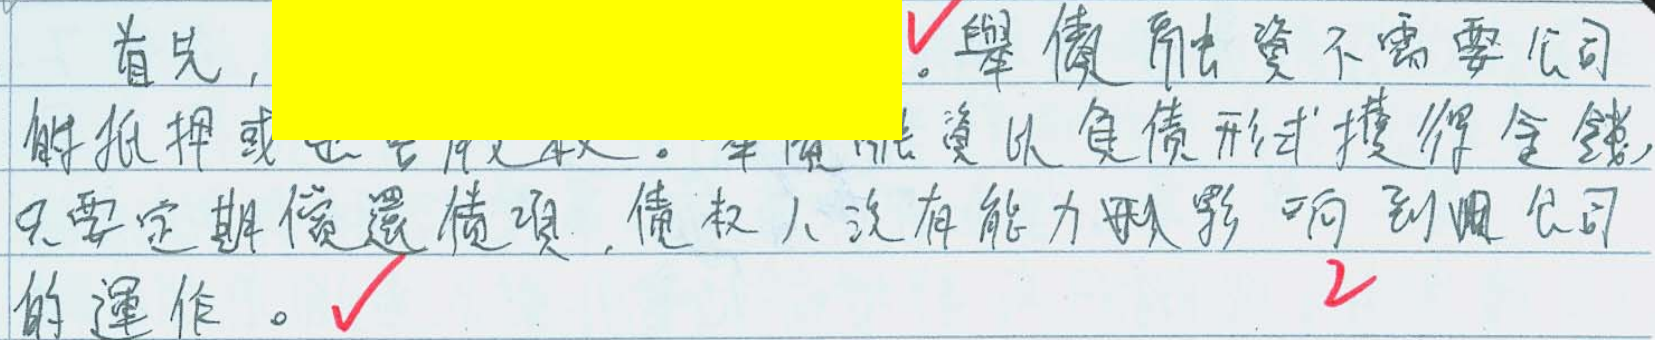 首先, 。舉債融資不需要公司
的抵押或 。舉債融資以負債形式獲得金錢,
只要定期償還債項,債权人没有能力影响到公司
的運作。
2